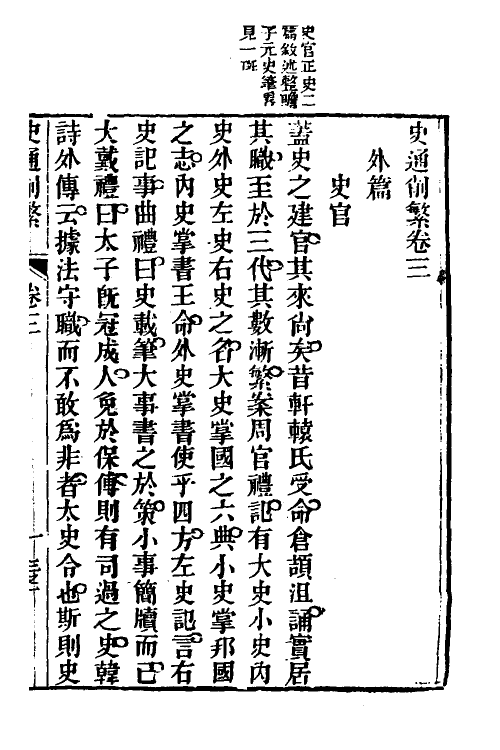 史官正史二
篇敘述整贍
子元史筆畧
見一斑
史通削繁卷三
外篇
史官
蓋史之建官其來尚矣昔軒轅氏受命倉頡沮誦實居
其職至於三代其數漸繁案周官禮記有大史小史內
史外史左史右史之名大史掌國之六典小史掌邦國
之志內史掌書王命外史掌書使乎四方左史記言右
史記事曲禮曰史載筆大事書之於策小事簡牘而已
大戴禮曰太子旣冠成人免於保傅則有司過之史韓
詩外傳云據法守職而不敢爲非者太史令也斯則史
史通削繁
卷三
一